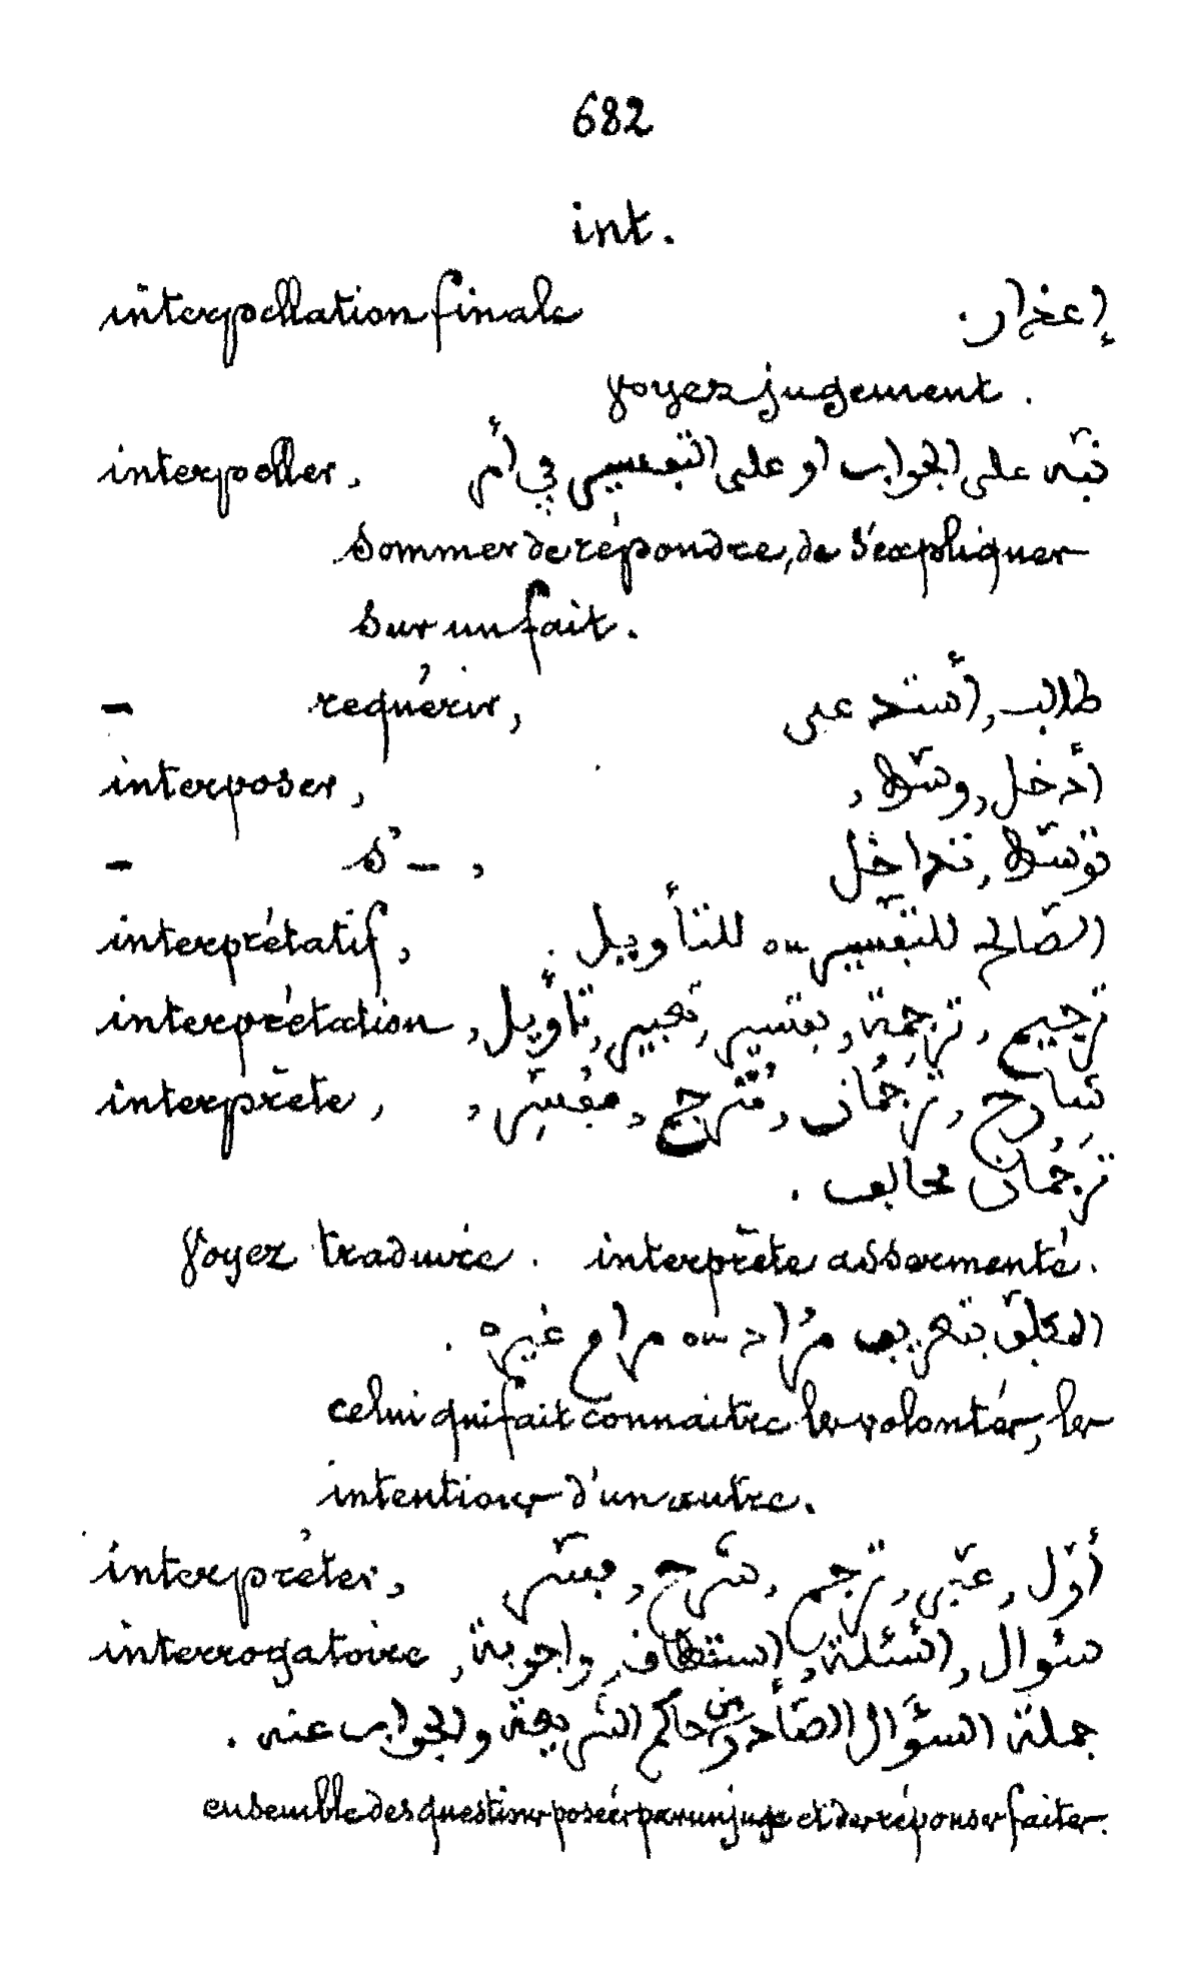 682
int.
interpellation finale إعذار.
voyez jugement.
interpeller, نبّه على الجواب او على التفسير في أمر
sommer de répondre, de s'expliquer
sur un fait.
— requérir, طالب, أستدعى
interposer, أدخل, وسّط,
— s'—, توسّط, تداخل
interprétatif, الصّالح للتفسّير ou للتأويل.
interprétation, ترجيم, ترجمة, تفسير, تعبير, تأويل,
interprète, شارح, ترجُمان, مُترجم, مفُسّر,
ترجُمان محالف.
voyez traduire. interprète assermenté.
المكلّف بتعريف مُراد ou مرام غيره.
celui qui fait connaitre les volontés, les
intentions d'un autre.
interpréter, أوّل, عبّر, ترجم, شرح, فسّر
interrogatoire, سئوال, أسئلة, إستنطاق, واجوبة,
جملة السؤَال الصّأدر من حاكم الشريعة والجواب عنه.
ensemble des questions posées par un juge et des réponses faites.